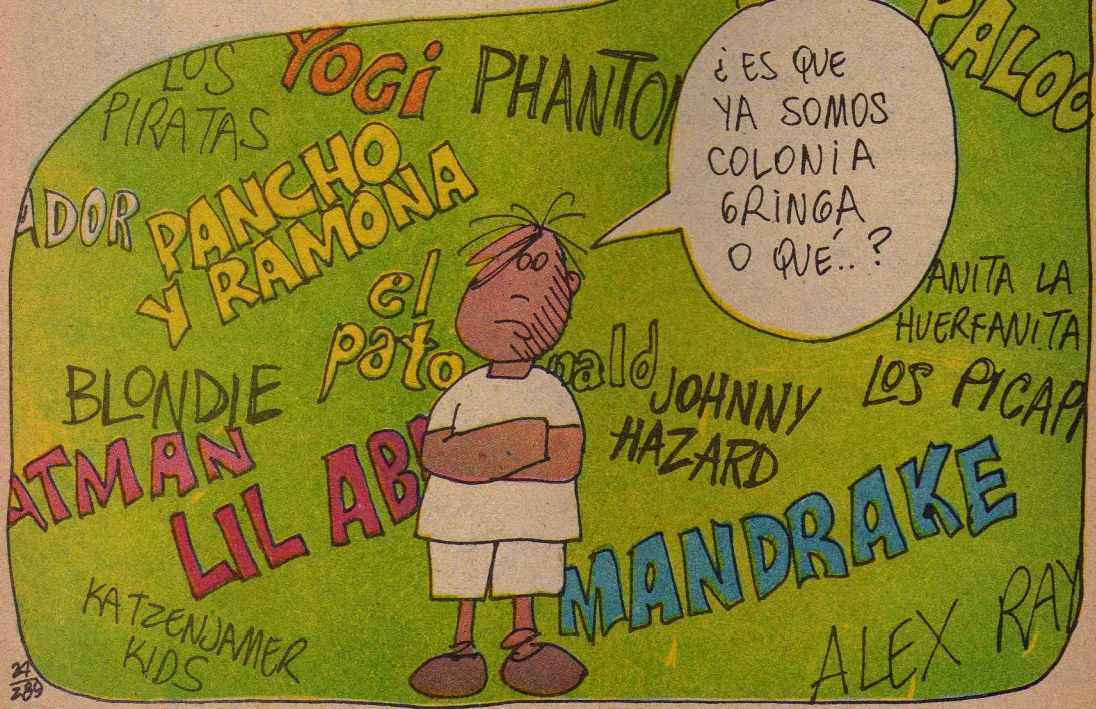 LOS
PIRATAS
YOGi
PHANTO
PALOO
¿ ES QUE
YA SOMOS
COLONiA
GRiNGA
O QUÉ..?
ADOR
PANCHO
Y RAMONA
el
pato
nald
ANITA LA
HUERFANITA
BLONDIE
JOHNNY
HAZARD
LOS PICAP
ATMAN
LIL AB
MANDRAKE
KATZENJAMER
KIDS
ALEX RAY
24
289